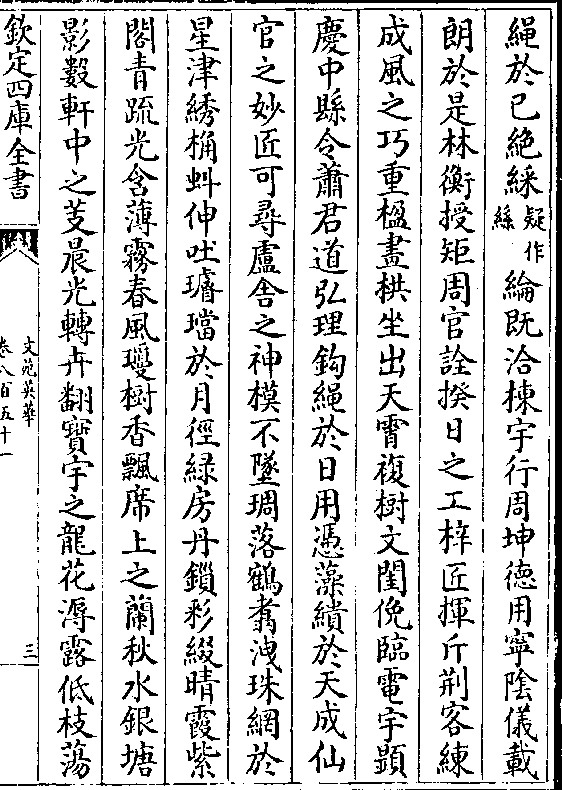 繩於已絶綵疑作絲綸既洽棟宇行周坤德用寧陰儀載
朗於是林衡授矩周官詮揆日之工梓匠揮斤荆客練
成風之巧重楹畫栱坐出天霄複樹文閨俛臨電宇顯
慶中縣令蕭君道弘理鉤繩於日用憑藻繢於天成仙
官之妙匠可尋盧舍之神模不墜琱落鶴翥洩珠網於
星津綉桷蚪伸吐璿璫於月徑緑房丹鎖彩綴晴霞紫
閣青疏光含薄霧春風瓊樹香飄席上之蘭秋水銀塘
影數軒中之芰晨光轉卉翻寳宇之龍花溽露低枝蕩
欽定四庫全書
文苑英華
卷八百五十一
三